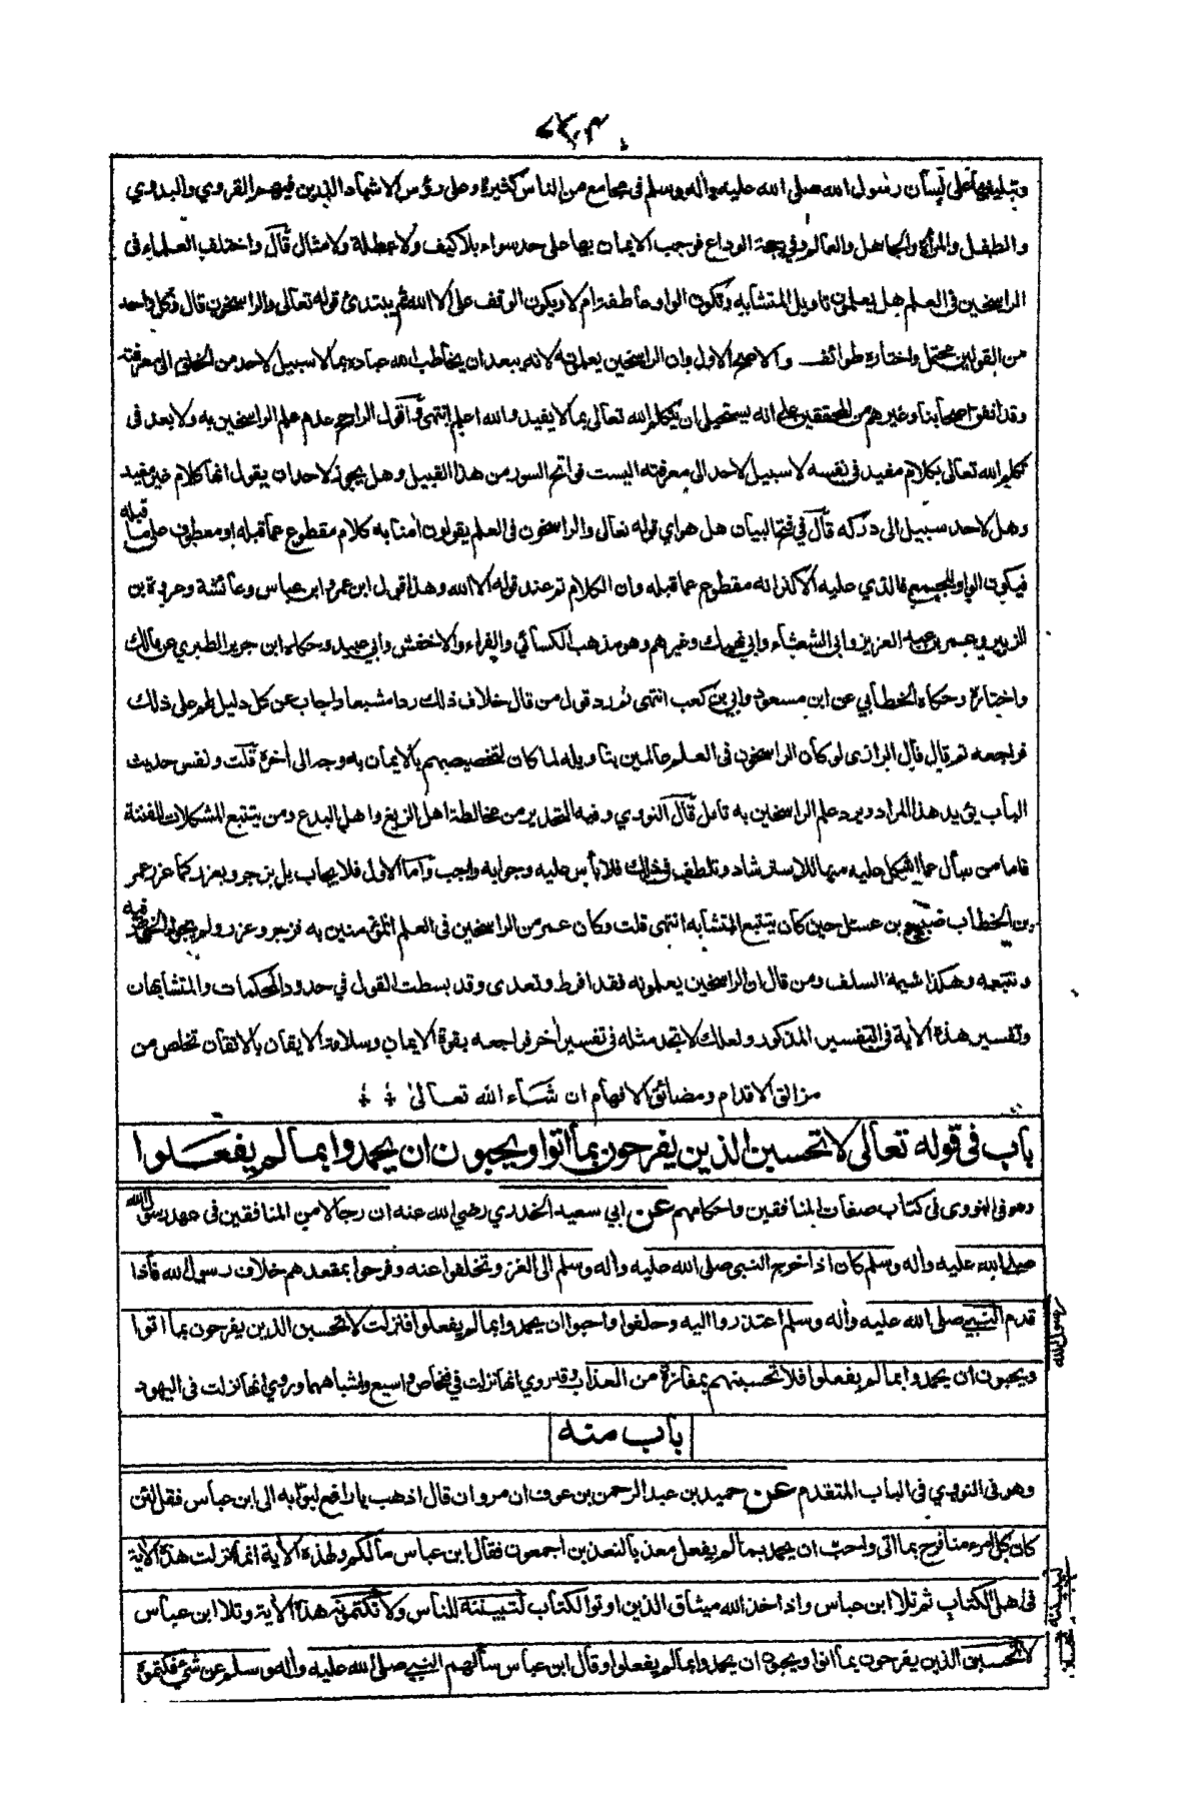 وتبليغها على لسان رسول الله صلى الله عليه وأله وسلم في مجامع من الناس كثيرة وعلى رؤس الاشهاد الذين فيهم القروي والبدوي
والطفل والمرأة والجاهل والعالم وفي حجة الوداع فوجب الايمان بها على حد سواء بلا كيف ولا عطلة ولا مثال قال واختلف العلماء في
الراسخين في العلم هل يعلمون تاويل المتشابه وتكون الواو عاطفة ام لا ويكون الوقف على الا الله ثم يبتدئ قوله تعالى والراسخون قال وكل واحد
من القولين محتمل واختاره طوائف والاصح الاول وان الراسخين يعلمونه لانه يبعد ان يخاطب الله عباده بما لا سبيل لاحد من الخلق الى معرفته
وقد اتفق اصحابنا وغيرهم من المحققين على انه يستحيل ان يتكلم الله تعالى بما لا يفيد والله اعلم انتهى وأقول الراجح عدم علم الراسخين به ولا بعد في
تكلم الله تعالى بكلام مفيد في نفسه لا سبيل لاحد الى معرفته اليست فواتح السور من هذا القبيل وهل يجوز لاحد ان يقول انها كلام غير مفيد
وهل لاحد سبيل الى دركه قال في فتح البيان هل هو اي قوله تعالى والراسخون في العلم يقولون أمنا به كلام مقطوع عما قبله او معطوف على ما قبله
فيكون الواو للجمع فالذي عليه الاكثر انه مقطوع عما قبله وان الكلام تم عند قوله الا الله وهذا قول ابن عمر وابن عباس وعائشة وعروة بن
الزبير وعمر بن عبد العزيز وابي الشعثاء وابي نهيك وغيرهم وهو مذهب الكسائي والفراء والاخفش وابي عبيد وحكاه ابن جرير الطبري عن مالك
واختاره وحكاه الخطابي عن ابن مسعود وابي بن كعب انتهى ثم رد قول من قال خلاف ذلك ردا مشبعا واجاب عن كل دليل لهم على ذلك
فراجعه ثم قال قال الرازى لو كان الراسخون في العلم عالمين بتاويله لما كان لتخصيصهم بالايمان به وجه الى أخره قلت ونفس حديث
الباب يؤيد هذا المراد ويرد علم الراسخين به تامل قال النووي وفيه التحذير من مخالطة اهل الزيغ واهل البدع ومن يتتبع المشكلات للفتنة
فاما من سأل عما اشكل عليه منها للاسترشاد وتلطف في ذلك فلا بأس عليه وجوابه واجب وأما الاول فلا يجاب بل يزجر ويعزر كما عزر عمر
بن الخطاب صبيغ بن عسل حين كان يتتبع المتشابه انتهى قلت وكان عمر من الراسخين في العلم فزجر وعزر ولم يجوز الخوض فيه
وتتبعه وهكذا شيمة السلف ومن قال ان الراسخين يعلمونه فقد افرط وتعدى وقد بسطت القول في حدود المحكمات والمتشابهات
وتفسير هذه الأية في التفسير المذكور ولعلك لا تجد مثله في تفسير أخر فراجعه بقوة الايمان وسلامة الايقان بالاتقان تخلص من
مزالق الاقدام ومضائق الافهام ان شاء الله تعالى
باب في قوله تعالى لا تحسبن الذين يفرحون بما أتوا ويحبون ان يحمدوا بما لم يفعلوا
وهو في النووى في كتاب صفات المنافقين واحكامهم عن ابي سعيد الخدري رضي الله عنه ان رجالا من المنافقين في عهد رسول الله
صلى الله عليه وأله وسلم كان اذا خرج النبي صلى الله عليه وأله وسلم الى الغزو تخلفوا عنه وفرحوا بمقعدهم خلاف رسول الله فأذا
قدم النبي صلى الله عليه وأله وسلم اعتذروا اليه وحلفوا واحبوا ان يحمدوا بما لم يفعلوا فنزلت لا تحسبن الذين يفرحون بما اتوا
ويحبون ان يحمدوا بما لم يفعلوا فلا تحسبنهم بمفازة من العذاب وقد روي انها نزلت في فنحاص واسيع واشباههما وروي انها نزلت في اليهود
رسول الله
باب منه
وهو في النووي في الباب المتقدم عن حميد بن عبد الرحمن بن عوف ان مروان قال اذهب يا رافع لبوابه الى ابن عباس فقل لئن
كان كل امرء منا فرح بما اتى واحب ان يحمد بما لم يفعل معذبا لنعذبن اجمعون فقال ابن عباس ما لكم ولهذه الأية انما أنزلت هذه الأية
في اهل الكتاب ثم تلا ابن عباس واذ اخذ الله ميثاق الذين اوتوا الكتاب لتبيننه للناس ولا تكتمونه هذه الأية وتلا ابن عباس
لا تحسبن الذين يفرحون بما أتوا ويحبون ان يحمدوا بما لم يفعلوا وقال ابن عباس سألهم النبي صلى الله عليه وأله وسلم عن شيء فكتموه